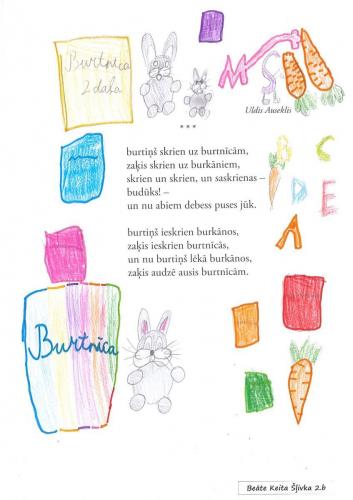 Burtnīca
2 daļa
Uldis Auseklis
***
burtiņš skrien uz burtnīcām,
zaķis skrien uz burkāniem,
skrien un skrien, un saskrienas –
budūks! –
un nu abiem debess puses jūk.
burtiņš ieskrien burkānos,
zaķis ieskrien burtnīcās,
un nu burtiņš lēkā burkānos,
zaķis audzē ausis burtnīcām.
B C
D E
A
Burtnīca
Beāte Keita Šļivka 2.b